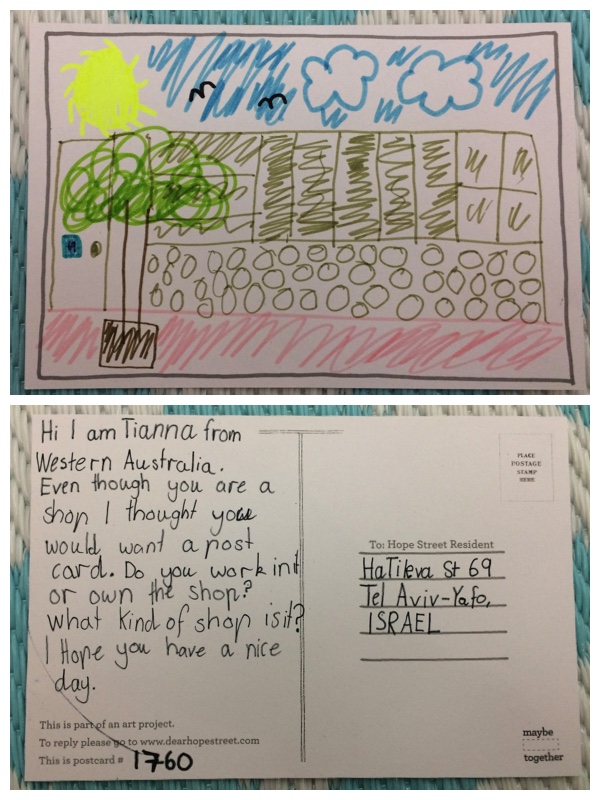 Hi I am Tianna from
Western Australia.
Even though you are a
shop I thought you
would want a post
card. Do you work in it
or own the shop?
What kind of shop is it?
I Hope you have a nice
day.
This is part of an art project.
To reply please go to www.dearhopestreet.com
This is postcard # 1760
PLACE
POSTAGE
STAMP
HERE
To: Hope Street Resident
HaTikva St 69
Tel Aviv-Yafo,
ISRAEL
maybe
together